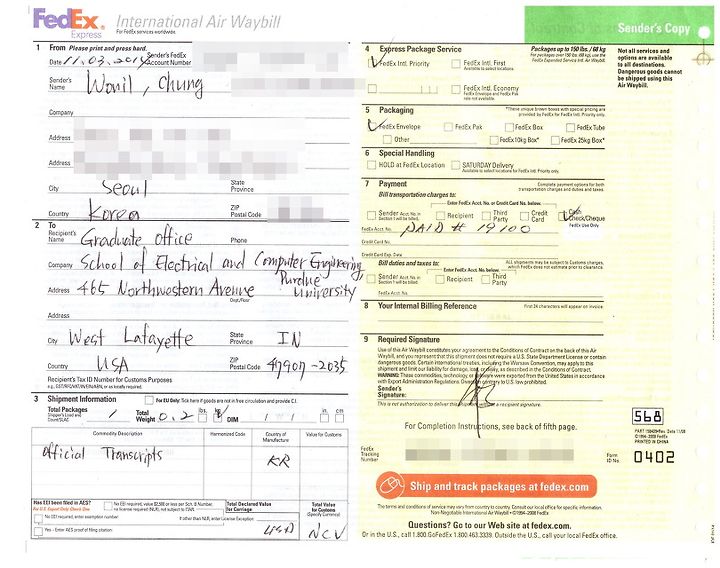 FedEx Express
International Air Waybill
For FedEx services worldwide.
Sender's Copy
1 From Please print and press hard.
Date 11.03.2014
Sender's FedEx Account Number
Sender's Name Wonil, Chung
Company
Address
Address
City Seoul
State Province
Country Korea
ZIP Postal Code
2 To
Recipient's Name Graduate office
Phone
Company School of Electrical and Computer Engineering, Purdue University
Address 465 Northwestern Avenue
Dept/Floor
Address
City West Lafayette
State Province IN
Country USA
ZIP Postal Code 47907-2035
Recipient's Tax ID Number for Customs Purposes
3 Shipment Information
For EU Only: Tick here if goods are not in free circulation and provide C.I.
Total Packages 1
Total Weight 0.2 lbs. kg
DIM
in. cm
Commodity Description
Harmonized Code
Country of Manufacture
Value for Customs
official Transcripts
KR
Has EEI been filed in AES?
For U.S. Export Only: Check One
No EEI required, value $2,500 or less per Sch. B Number, no license required (NLR), not subject to ITAR.
No EEI required, enter exemption number:
If other than NLR, enter License Exception:
Yes - Enter AES proof of filing citation:
Total Declared Value for Carriage
Total Value for Customs
(Specify Currency)
NCV
4 Express Package Service
Packages up to 150 lbs. / 68 kg
FedEx Intl. Priority
FedEx Intl. First
Available to select locations.
FedEx Intl. Economy
FedEx Envelope and FedEx Pak rate not available.
Not all services and options are available to all destinations. Dangerous goods cannot be shipped using this Air Waybill.
5 Packaging
*These unique brown boxes with special pricing are provided by FedEx for FedEx Intl. Priority only.
FedEx Envelope
FedEx Pak
FedEx Box
FedEx Tube
Other
FedEx 10kg Box*
FedEx 25kg Box*
6 Special Handling
HOLD at FedEx Location
SATURDAY Delivery
Available to select locations for FedEx Intl. Priority only.
7 Payment
Complete payment options for both transportation charges and duties and taxes.
Bill transportation charges to:
Enter FedEx Acct. No. or Credit Card No. below.
Sender Acct. No. in Section 1 will be billed.
Recipient
Third Party
Credit Card
Cash Check/Cheque
FedEx Acct. No.
PAID # 19100
FedEx Use Only
Credit Card No.
Credit Card Exp. Date
Bill duties and taxes to:
ALL shipments may be subject to Customs charges, which FedEx does not estimate prior to clearance.
Enter FedEx Acct. No. below.
Sender Acct. No. in Section 1 will be billed.
Recipient
Third Party
FedEx Acct. No.
8 Your Internal Billing Reference
First 24 characters will appear on invoice.
9 Required Signature
Use of this Air Waybill constitutes your agreement to the Conditions of Contract on the back of this Air Waybill, and you represent that this shipment does not require a U.S. State Department License or contain dangerous goods. Certain international treaties, including the Warsaw Convention, may apply to this shipment and limit our liability for damage, loss, or delay, as described in the Conditions of Contract.
WARNING: These commodities, technology, or software were exported from the United States in accordance with Export Administration Regulations. Diversion contrary to U.S. law prohibited.
Sender's Signature:
This is not authorization to deliver this shipment without a recipient signature.
For Completion Instructions, see back of fifth page.
568
FedEx Tracking Number
Form ID No. 0402
Ship and track packages at fedex.com
The terms and conditions of service may vary from country to country. Consult our local office for specific information.
Non-Negotiable International Air Waybill • ©1994-2008 FedEx
Questions? Go to our Web site at fedex.com.
Or in the U.S., call 1.800.GoFedEx 1.800.463.3339. Outside the U.S., call your local FedEx office.